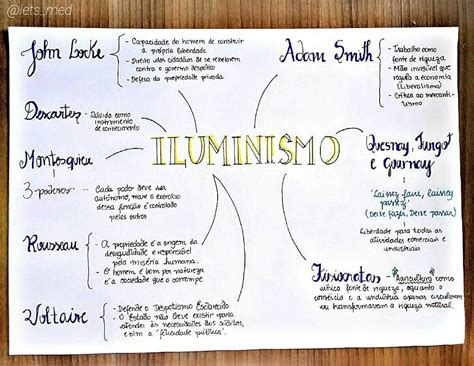 @lets_med
John Locke
- Capacidade do homem de construir
a própria liberdade
- Direito dos cidadãos de se rebelarem
contra o governo despótico
- Defesa da propriedade privada
Descartes
- Dúvida como
instrumento
de conhecimento
Montesquieu
3 poderes
- Cada poder deve ser
autônomo, mas o exercício
dessa função é controlado
pelos outros
Rousseau
- A propriedade é a origem da
desigualdade e responsável
pela miséria humana.
- O homem é bom por natureza
e a sociedade que o corrompe
Voltaire
- Defende o Despotismo Esclarecido
- O Estado não deve existir para
atender às necessidades dos súditos,
e sim a "felicidade pública".
ILUMINISMO
Adam Smith
- Trabalho como
fonte de riqueza
- Mão invisível que
regula a economia
(liberalismo)
- Crítica ao mercanti-
lismo
Quesnay, Turgot
e Gournay
"Laissez faire, laissez
passez"
(Deixe fazer, Deixe passar)
Liberdade para todas as
atividades comerciais e
industriais
Fisiocratas
- Agricultura como
única fonte de riqueza, enquanto o
comércio e a indústria apenas circulavam
ou transformavam a riqueza natural.